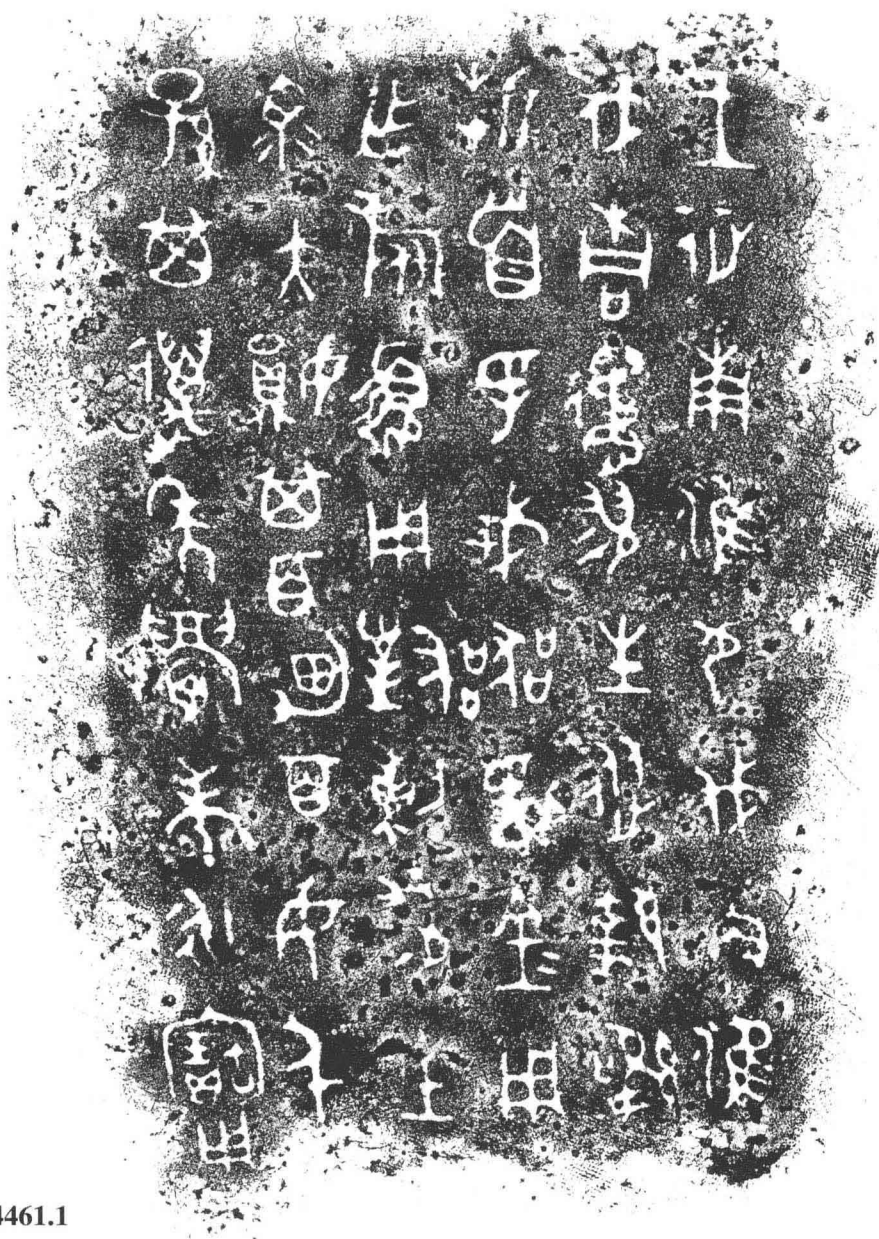 王征南淮尸伐角津
伐桐遹翏生從執訊
折首孚戎器孚金用
乍旅盨用對剌翏生
眔大㜏其百男百女千
孫其邁年眉壽永寶用
4461.1